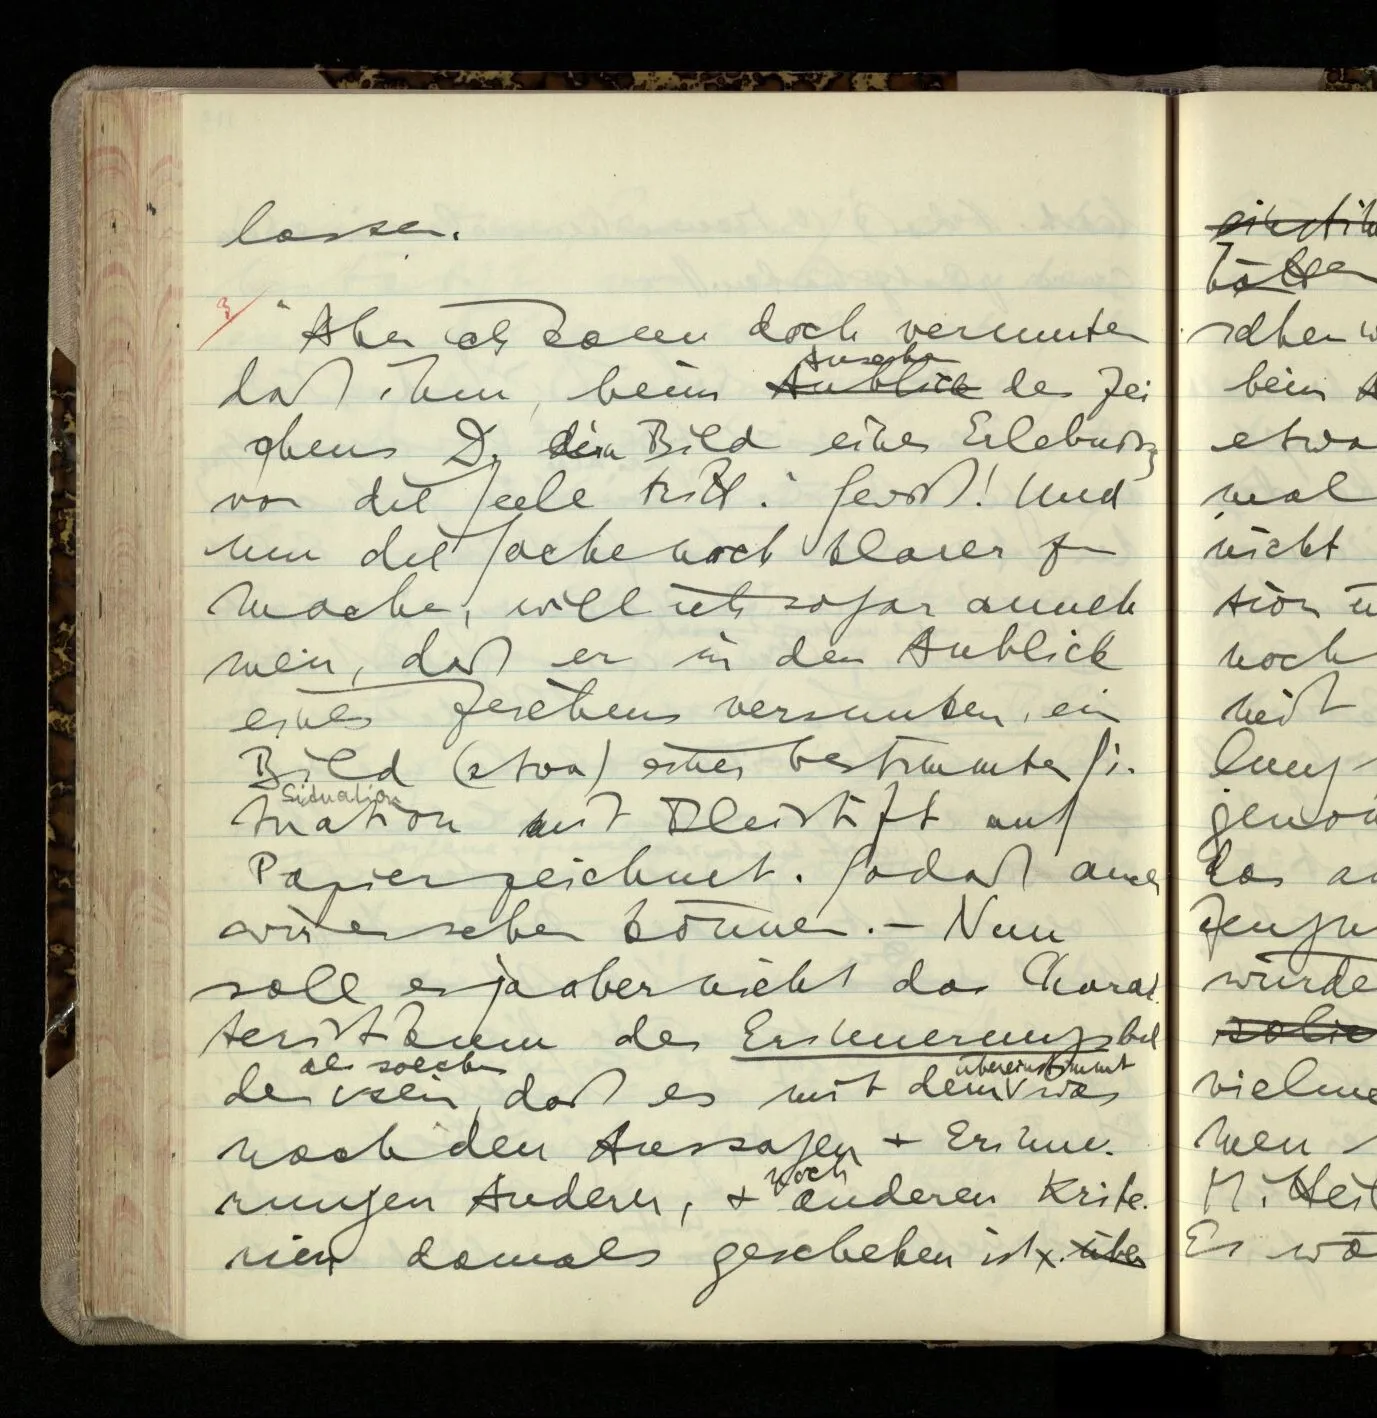 lassen.
3/ "Aber ich kann doch vermuten
Ansehen
daß ihm, beim Anblick des Zei
chens D, ein Bild eines Erlebnisses
vor die Seele tritt." Gewiß! Und
um die Sache noch klarer zu
machen, will ich sogar anneh
men, daß er in den Anblick
eines Zeichens versunken, ein
Bild (etwa) einer bestimmten Si-
Situation
tuation mit Bleistift auf
Papier zeichnet. Sodaß auch
wir es sehen können. – Nun
soll es ja aber nicht das Charak
teristikum des Erinnerungsbil
als solchen übereinstimmt
des sein, daß es mit dem was
nach den Aussagen + Erinne-
noch
rungen Anderer, + anderen Krite-
rien damals geschehen ist. über
hätten
sehen w
beim A
etwa
mal
nicht
tion ü
noch
nicht
lung
genom
das an
Zeugn
würde
solie
vielme
men
M
Es wä